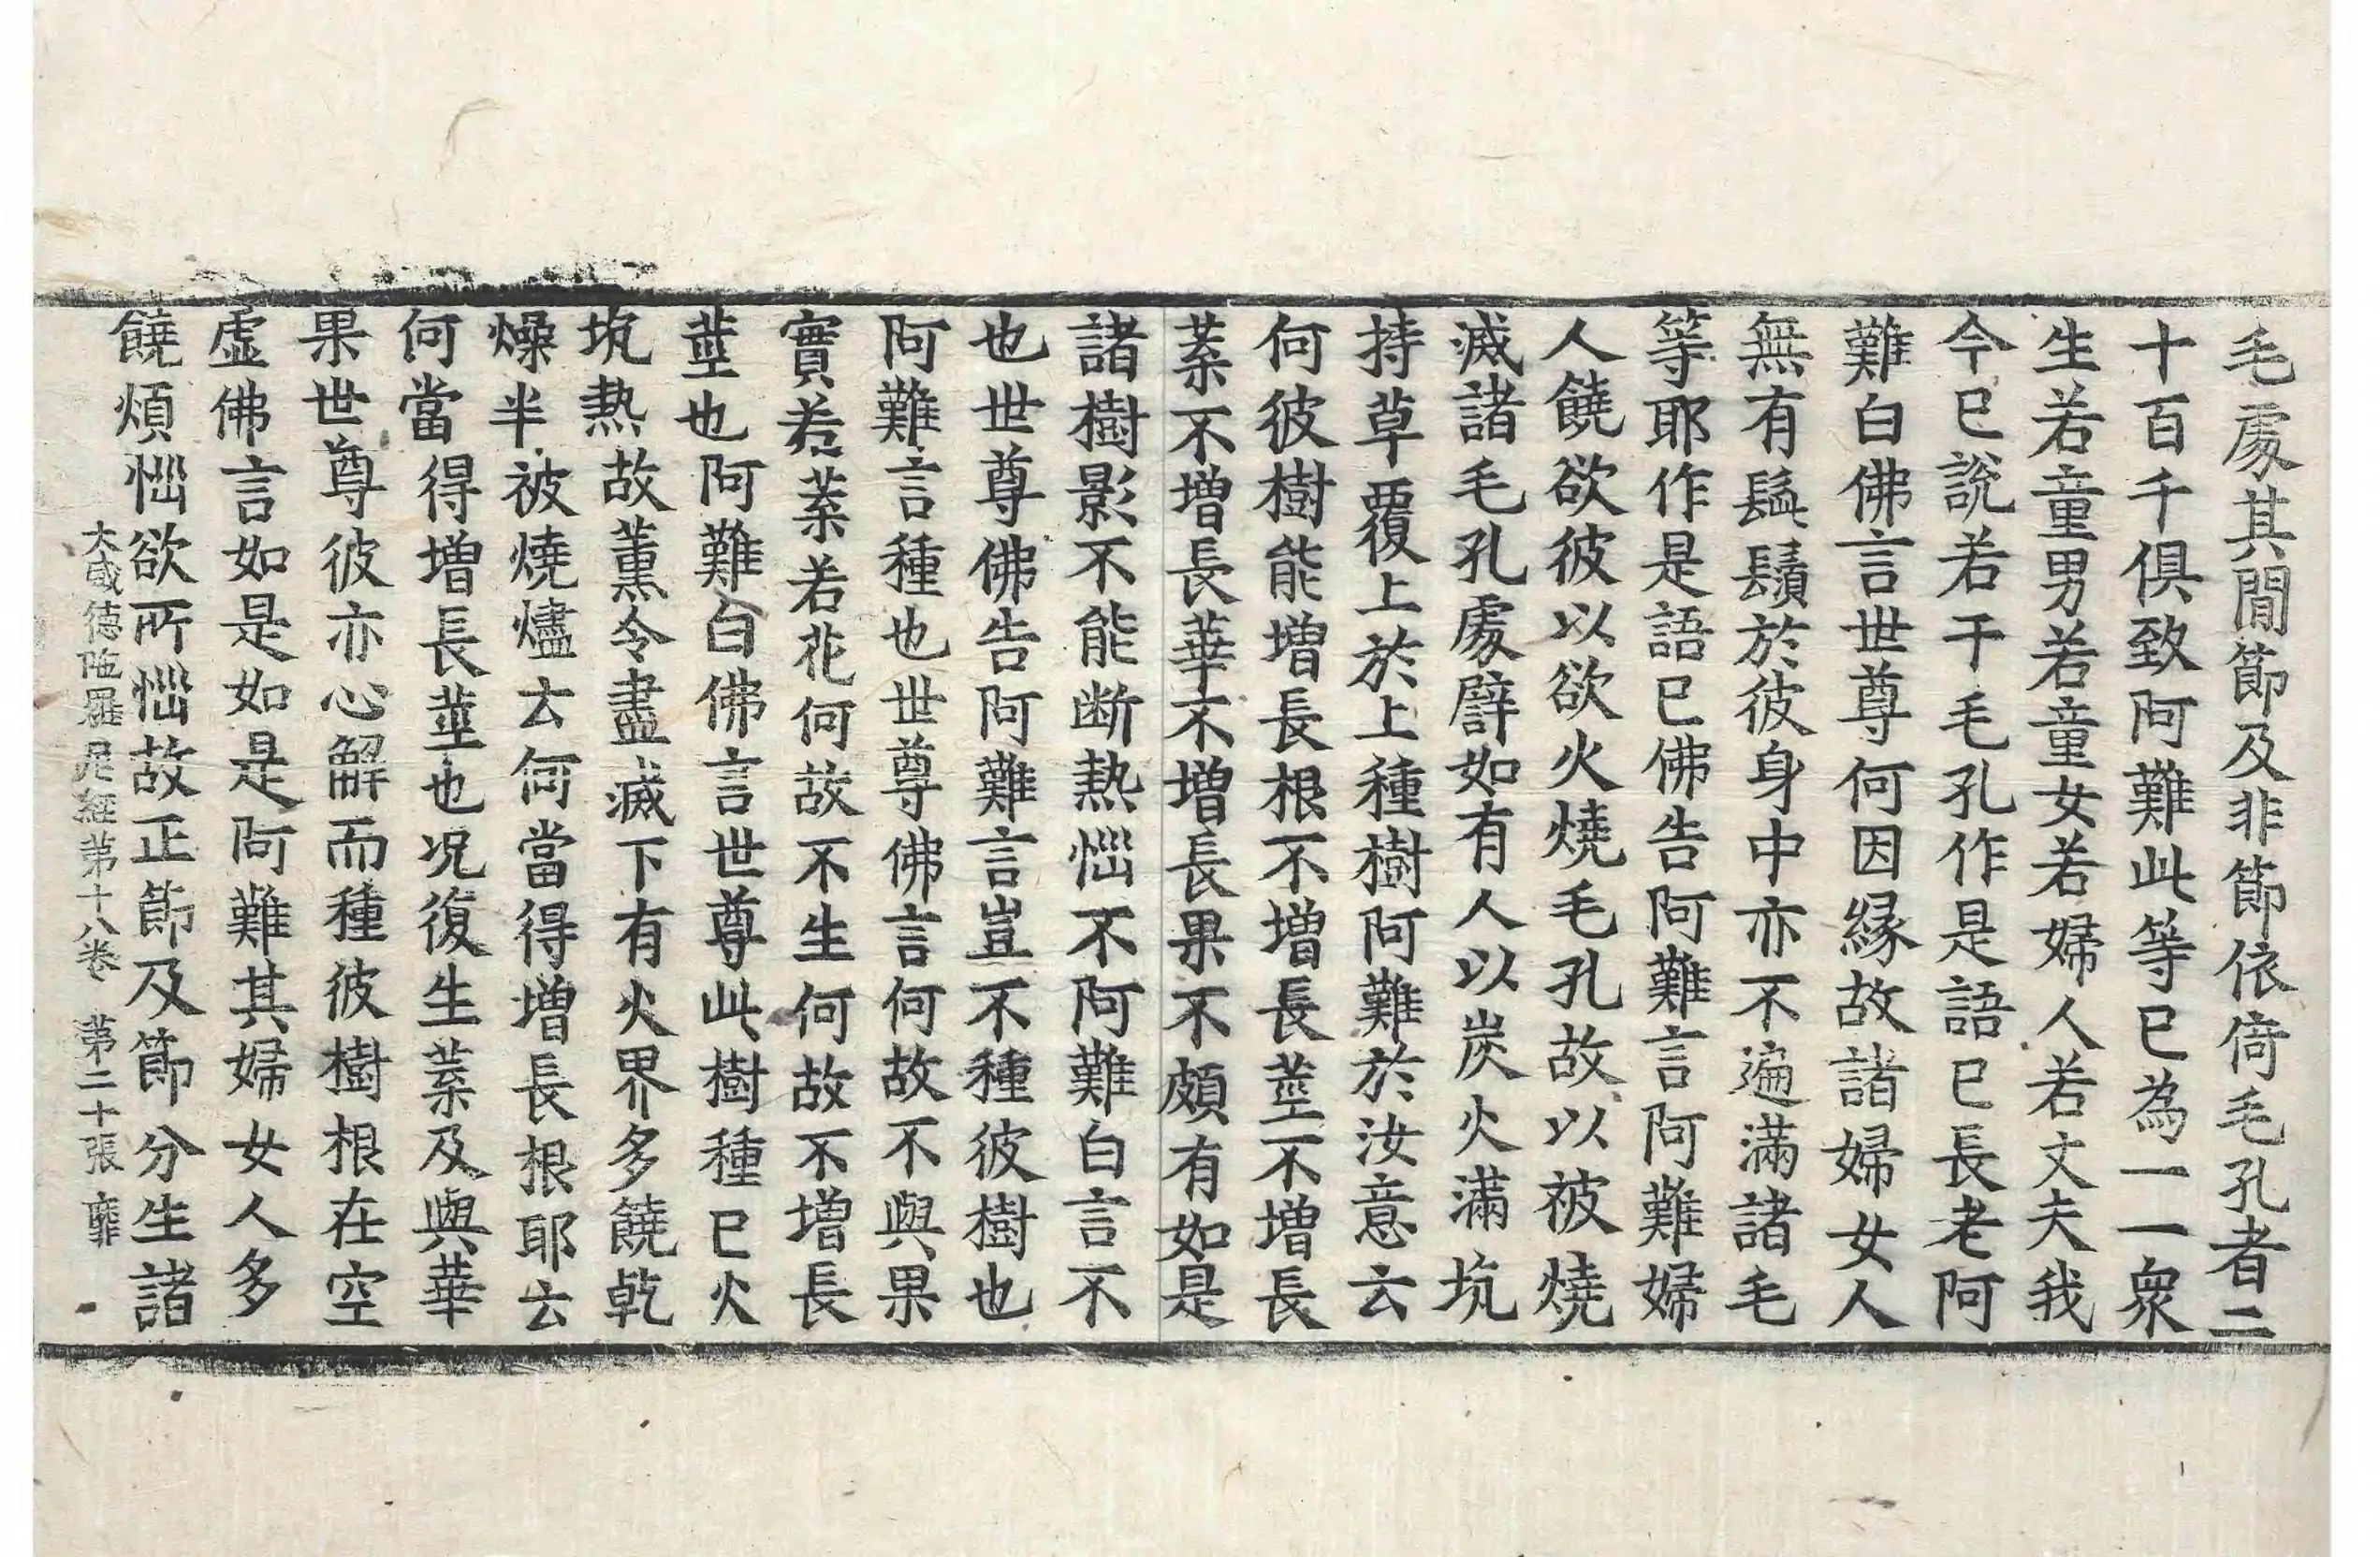 毛處其間節及非節依倚毛孔者二
十百千俱致阿難此等已為一一衆
生若童男若童女若婦人若丈夫我
今已說若干毛孔作是語已長老阿
難白佛言世尊何因緣故諸婦女人
無有鬚鬚於彼身中亦不遍滿諸毛
等耶作是語已佛告阿難言阿難婦
人饒欲彼以欲火燒毛孔故以被燒
滅諸毛孔處譬如有人以炭火滿坑
持草覆上於上種樹阿難於汝意云
何彼樹能增長根不增長莖不增長
葉不增長華不增長果不頗有如是
諸樹影不能断熱惱不阿難白言不
也世尊佛告阿難言豈不種彼樹也
阿難言種也世尊佛言何故不與果
實若葉若花何故不生何故不增長
莖也阿難白佛言世尊此樹種已火
坑熱故薰令盡滅下有火界多饒乾
燥半被燒燼去何當得增長根耶云
何當得增長莖也况復生葉及與華
果世尊彼亦心解而種彼樹根在空
虛佛言如是如是阿難其婦女人多
饒煩惱欲所惱故正節及節分生諸
大威德陁羅尼經第十八卷 第二十張 靡